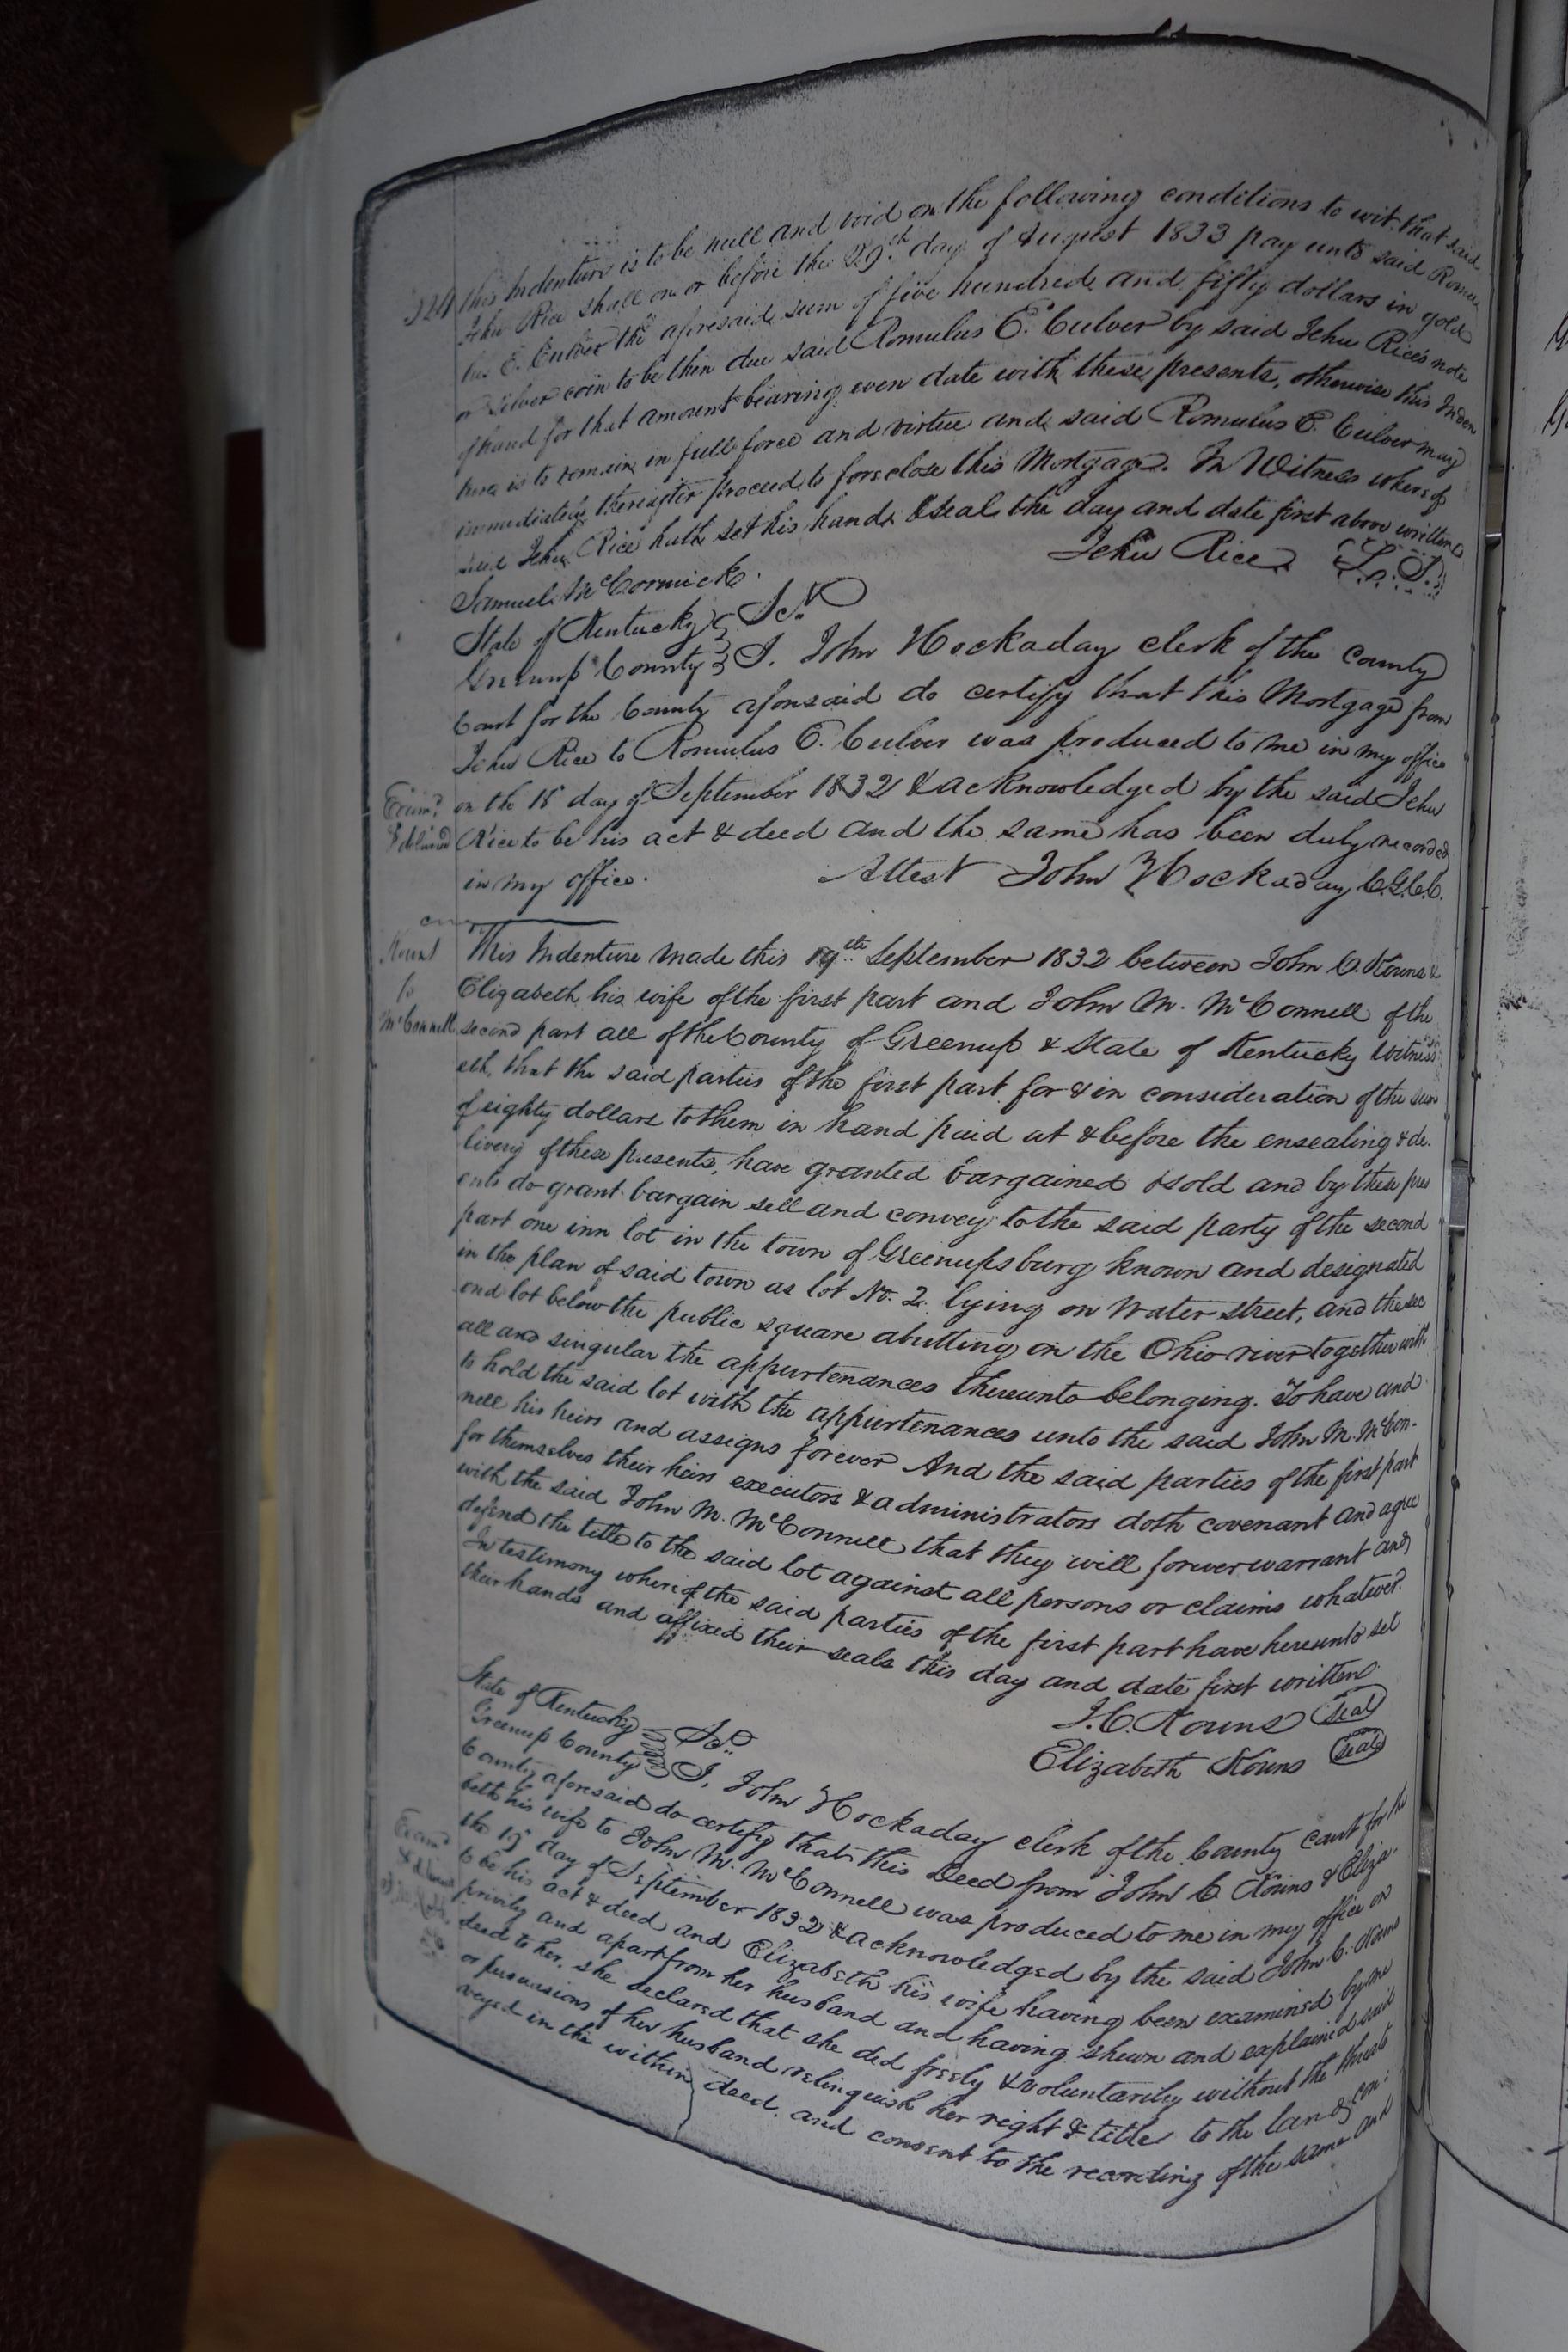 324 this Indenture is to be null and void on the following conditions to wit. that said
Jehu Rice shall on or before the 29th day of August 1833 pay unto said Romu
lus E. Culver the aforesaid sum of five hundred and fifty dollars in gold
or silver coin to be then due said Romulus E. Culver by said Jehu Rice's note
of hand for that amount bearing even date with these presents, otherwise this Inden
ture is to remain in full force and virtue and said Romulus E. Culver may
immediately thereafter proceed to foreclose this Mortgage. In Witness whereof
said Jehu Rice hath set his hand & seal the day and date first above written
Jehu Rice L.S.
Samuel McCormick.
State of Kentucky } Sct
Greenup County } I, John Hockaday clerk of the county
Court for the County aforesaid do certify that this Mortgage from
Jehu Rice to Romulus E. Culver was produced to me in my office
on the 18 day of September 1832 & acknowledged by the said Jehu
Rice to be his act & deed and the same has been duly recorded
in my office. Attest John Hockaday C.G.C.C.
Exam.d
& delivered
Kouns
to
McConnell
This Indenture made this 19th September 1832 between John C. Kouns &
Elizabeth his wife of the first part and John M. McConnell of the
second part all of the County of Greenup & State of Kentucky Witness
eth, that the said parties of the first part for & in consideration of the sum
of eighty dollars to them in hand paid at & before the ensealing & de.
livery of these presents, have granted bargained & sold and by these pres
ents do grant bargain sell and convey to the said party of the second
part one inn lot in the town of Greenupsburg known and designated
in the plan of said town as lot No. 2. lying on Water street, and the sec
ond lot below the public square abutting on the Ohio river together with
all and singular the appurtenances thereunto belonging. To have and
to hold the said lot with the appurtenances unto the said John M. McCon-
nell his heirs and assigns forever And the said parties of the first part
for themselves their heirs executors & administrators doth covenant and agree
with the said John M. McConnell that they will forever warrant and
defend the title to the said lot against all persons or claims whatever.
In testimony whereof the said parties of the first part have hereunto set
their hands and affixed their seals this day and date first written.
J. C. Kouns seal
Elizabeth Kouns seal
State of Kentucky } Sct
Greenup County } I, John Hockaday clerk of the County court for the
County aforesaid do certify that this Deed from John C. Kouns & Eliza-
beth his wife to John M. McConnell was produced to me in my office on
the 19 day of September 1832 & acknowledged by the said John C. Kouns
to be his act & deed and Elizabeth his wife having been examined by me
privily and apart from her husband and having shewn and explained said
deed to her, she declared that she did freely & voluntarily without the threats
or persuasions of her husband relinquish her right & title to the land con:
veyed in the within deed. and consent to the recording of the same and
Exam.d